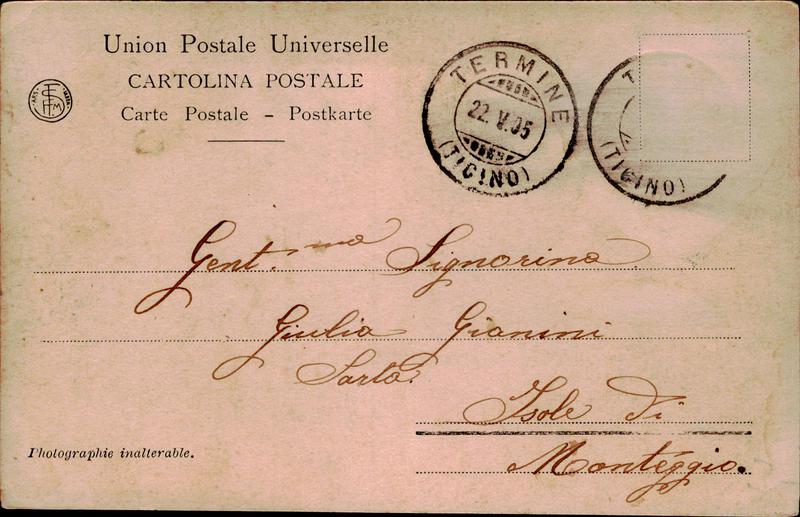 Union Postale Universelle
CARTOLINA POSTALE
Carte Postale - Postkarte
TERMINE
22. V. 05
(TICINO)
T
(TICINO)
Gent.ma Signorina
Giulia Gianini
Sarta.
Isole di
Montéggio.
Photographie inalterable.